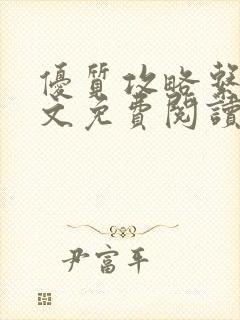 優質攻略系
文免費閱讀
尹富平